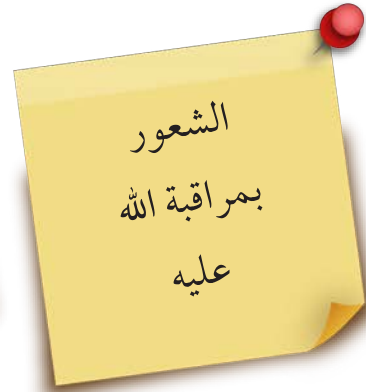 الشعور
بمراقبة الله
عليه